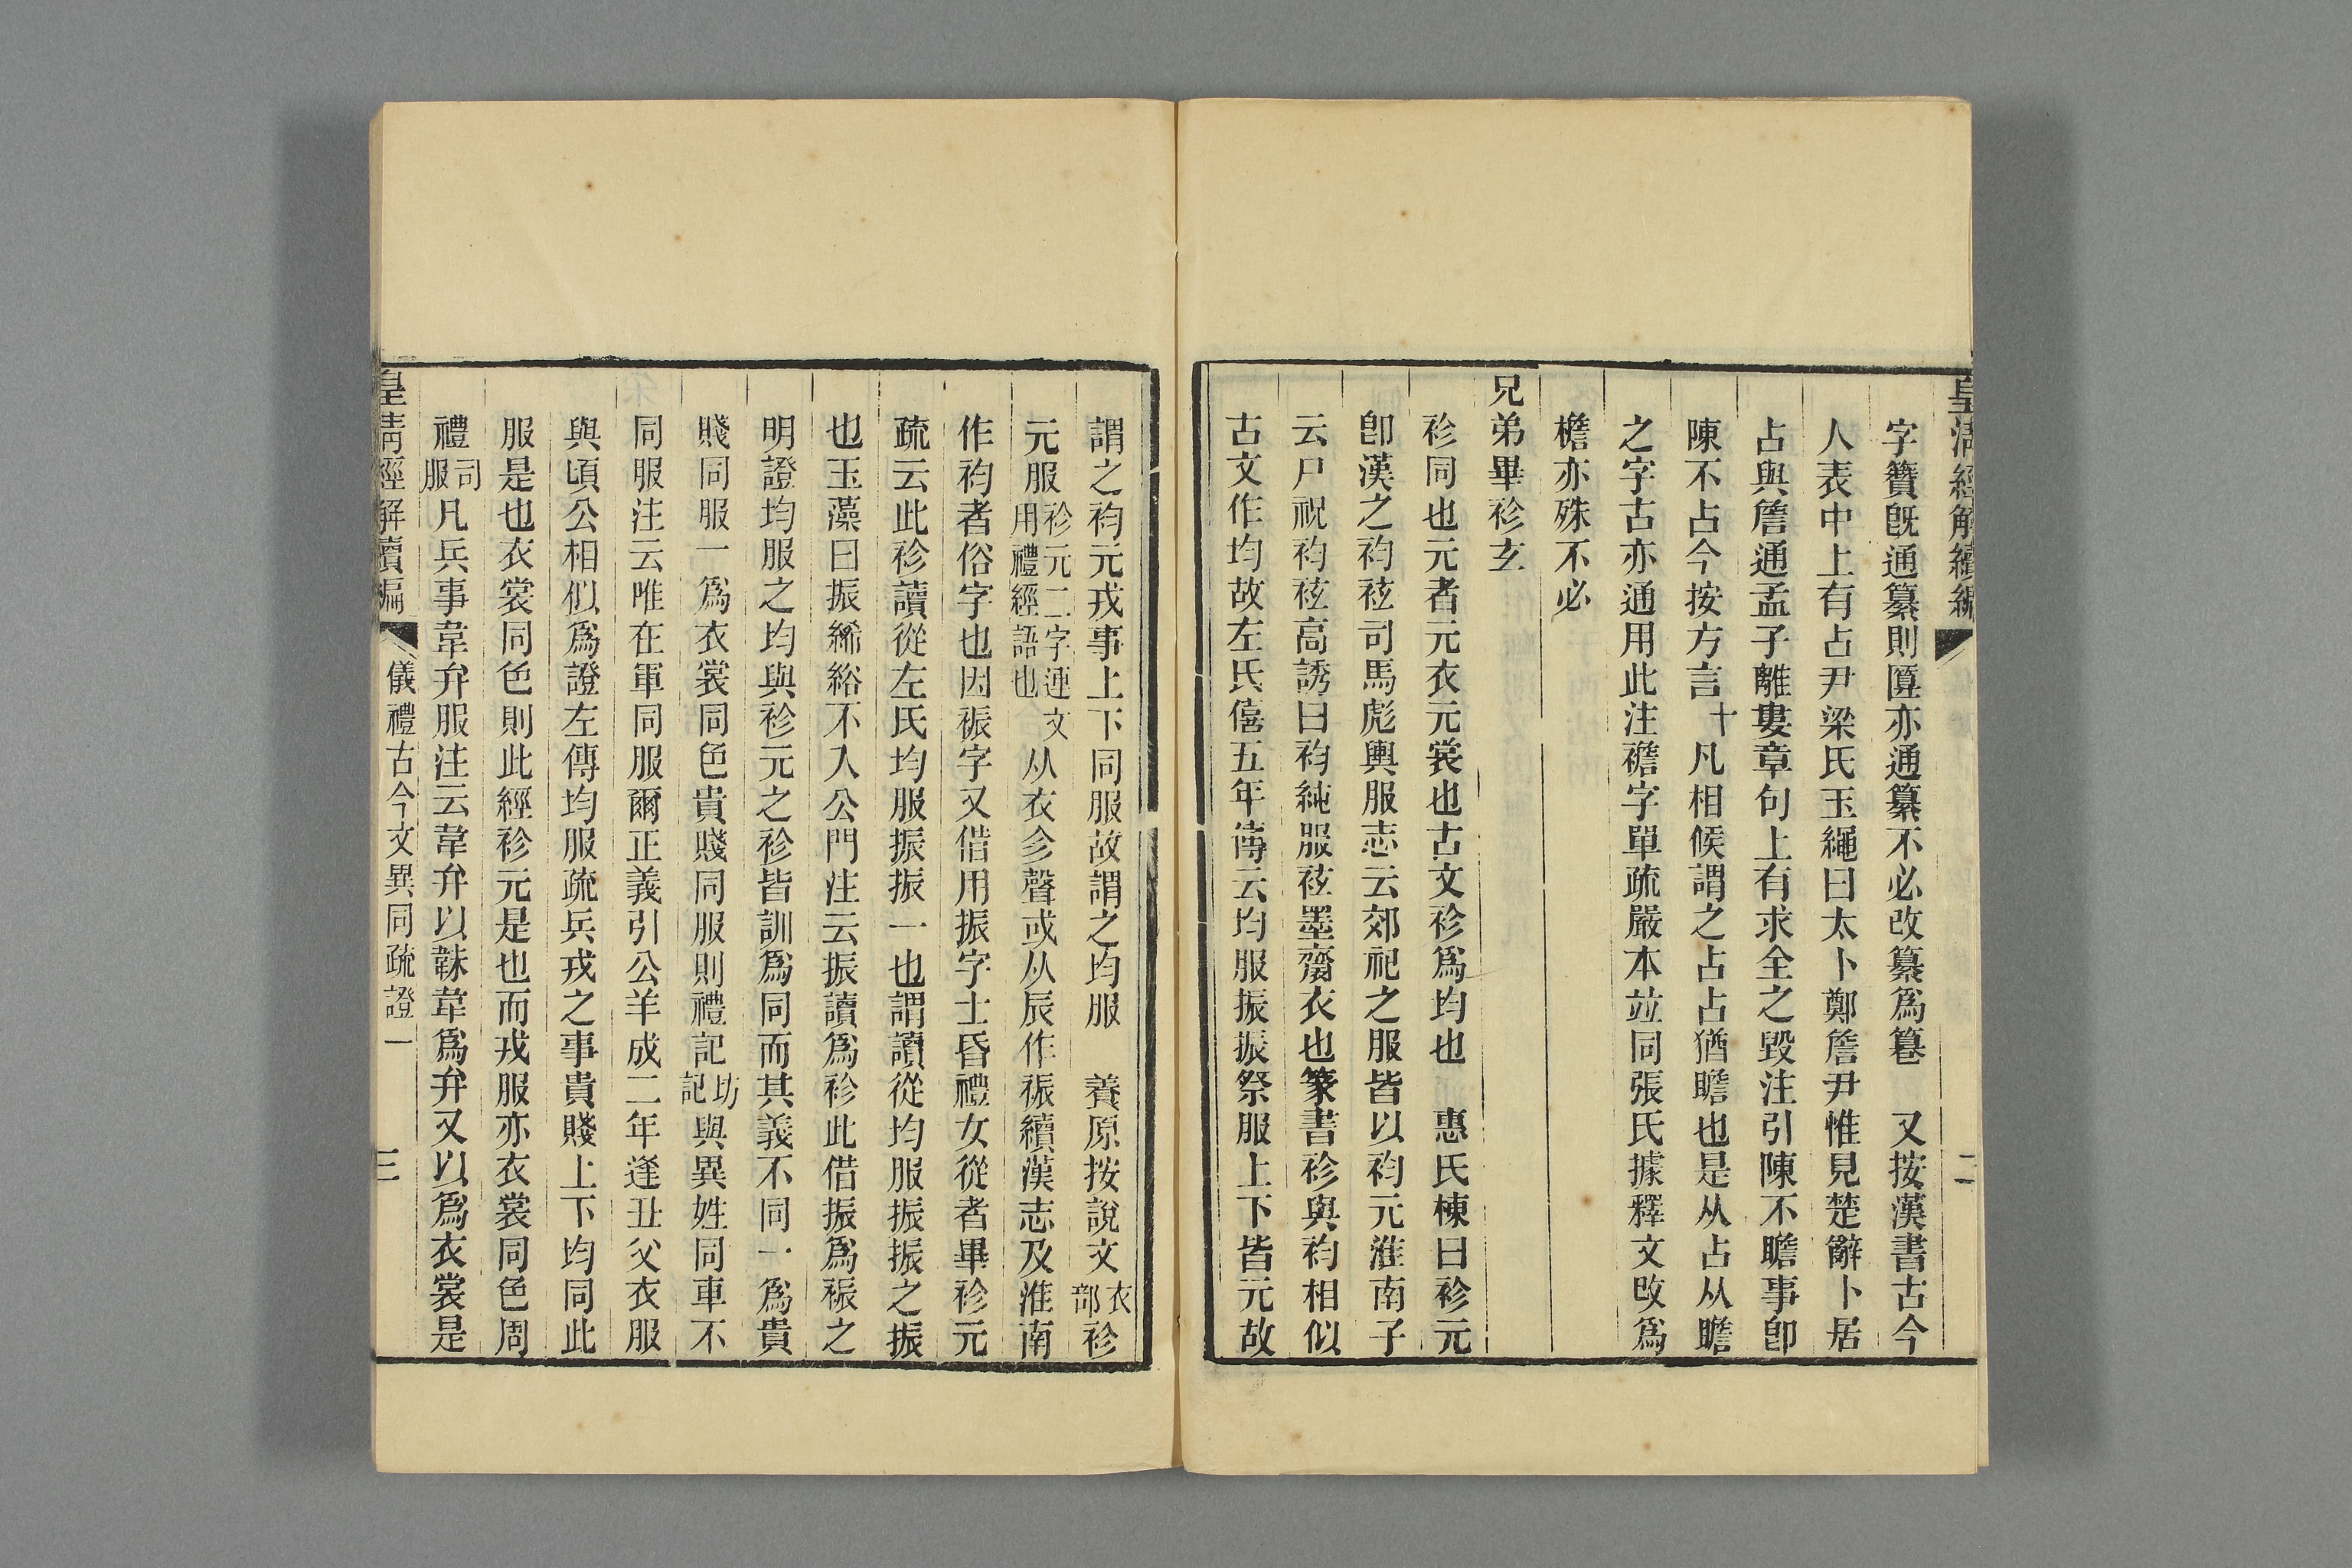 皇清經解續編
二
字簪旣通纂則匴亦通纂不必改纂爲篹　又按漢書古今
人表中上有占尹梁氏玉繩曰太卜鄭詹尹惟見楚辭卜居
占與詹通孟子離婁章句上有求全之毀注引陳不瞻事卽
陳不占今按方言十凡相候謂之占占猶瞻也是从占从瞻
之字古亦通用此注襜字單疏嚴本竝同張氏據釋文改爲
檐亦殊不必
兄弟畢袗玄
袗同也元者元衣元裳也古文袗爲均也　惠氏棟曰袗元
卽漢之袀袨司馬彪輿服志云郊祀之服皆以袀元淮南子
云尸祝袀袨高誘曰袀純服袨墨齋衣也篆書袗與袀相似
古文作均故左氏僖五年傳云均服振振祭服上下皆元故
謂之袀元戎事上下同服故謂之均服　養原按說文衣部袗
元服袗元二字連文用禮經語也从衣㐱聲或从辰作裖續漢志及淮南
作袀者俗字也因裖字又借用振字士昏禮女從者畢袗元
疏云此袗讀從左氏均服振振一也謂讀從均服振振之振
也玉藻曰振絺綌不入公門注云振讀爲袗此借振爲裖之
明證均服之均與袗元之袗皆訓爲同而其義不同一爲貴
賤同服一爲衣裳同色貴賤同服則禮記坊記與異姓同車不
同服注云唯在軍同服爾正義引公羊成二年逢丑父衣服
與頃公相似爲證左傳均服疏兵戎之事貴賤上下均同此
服是也衣裳同色則此經袗元是也而戎服亦衣裳同色周
禮司服凡兵事韋弁服注云韋弁以韎韋爲弁又以爲衣裳是
皇清經解續編
儀禮古今文異同疏證一
三